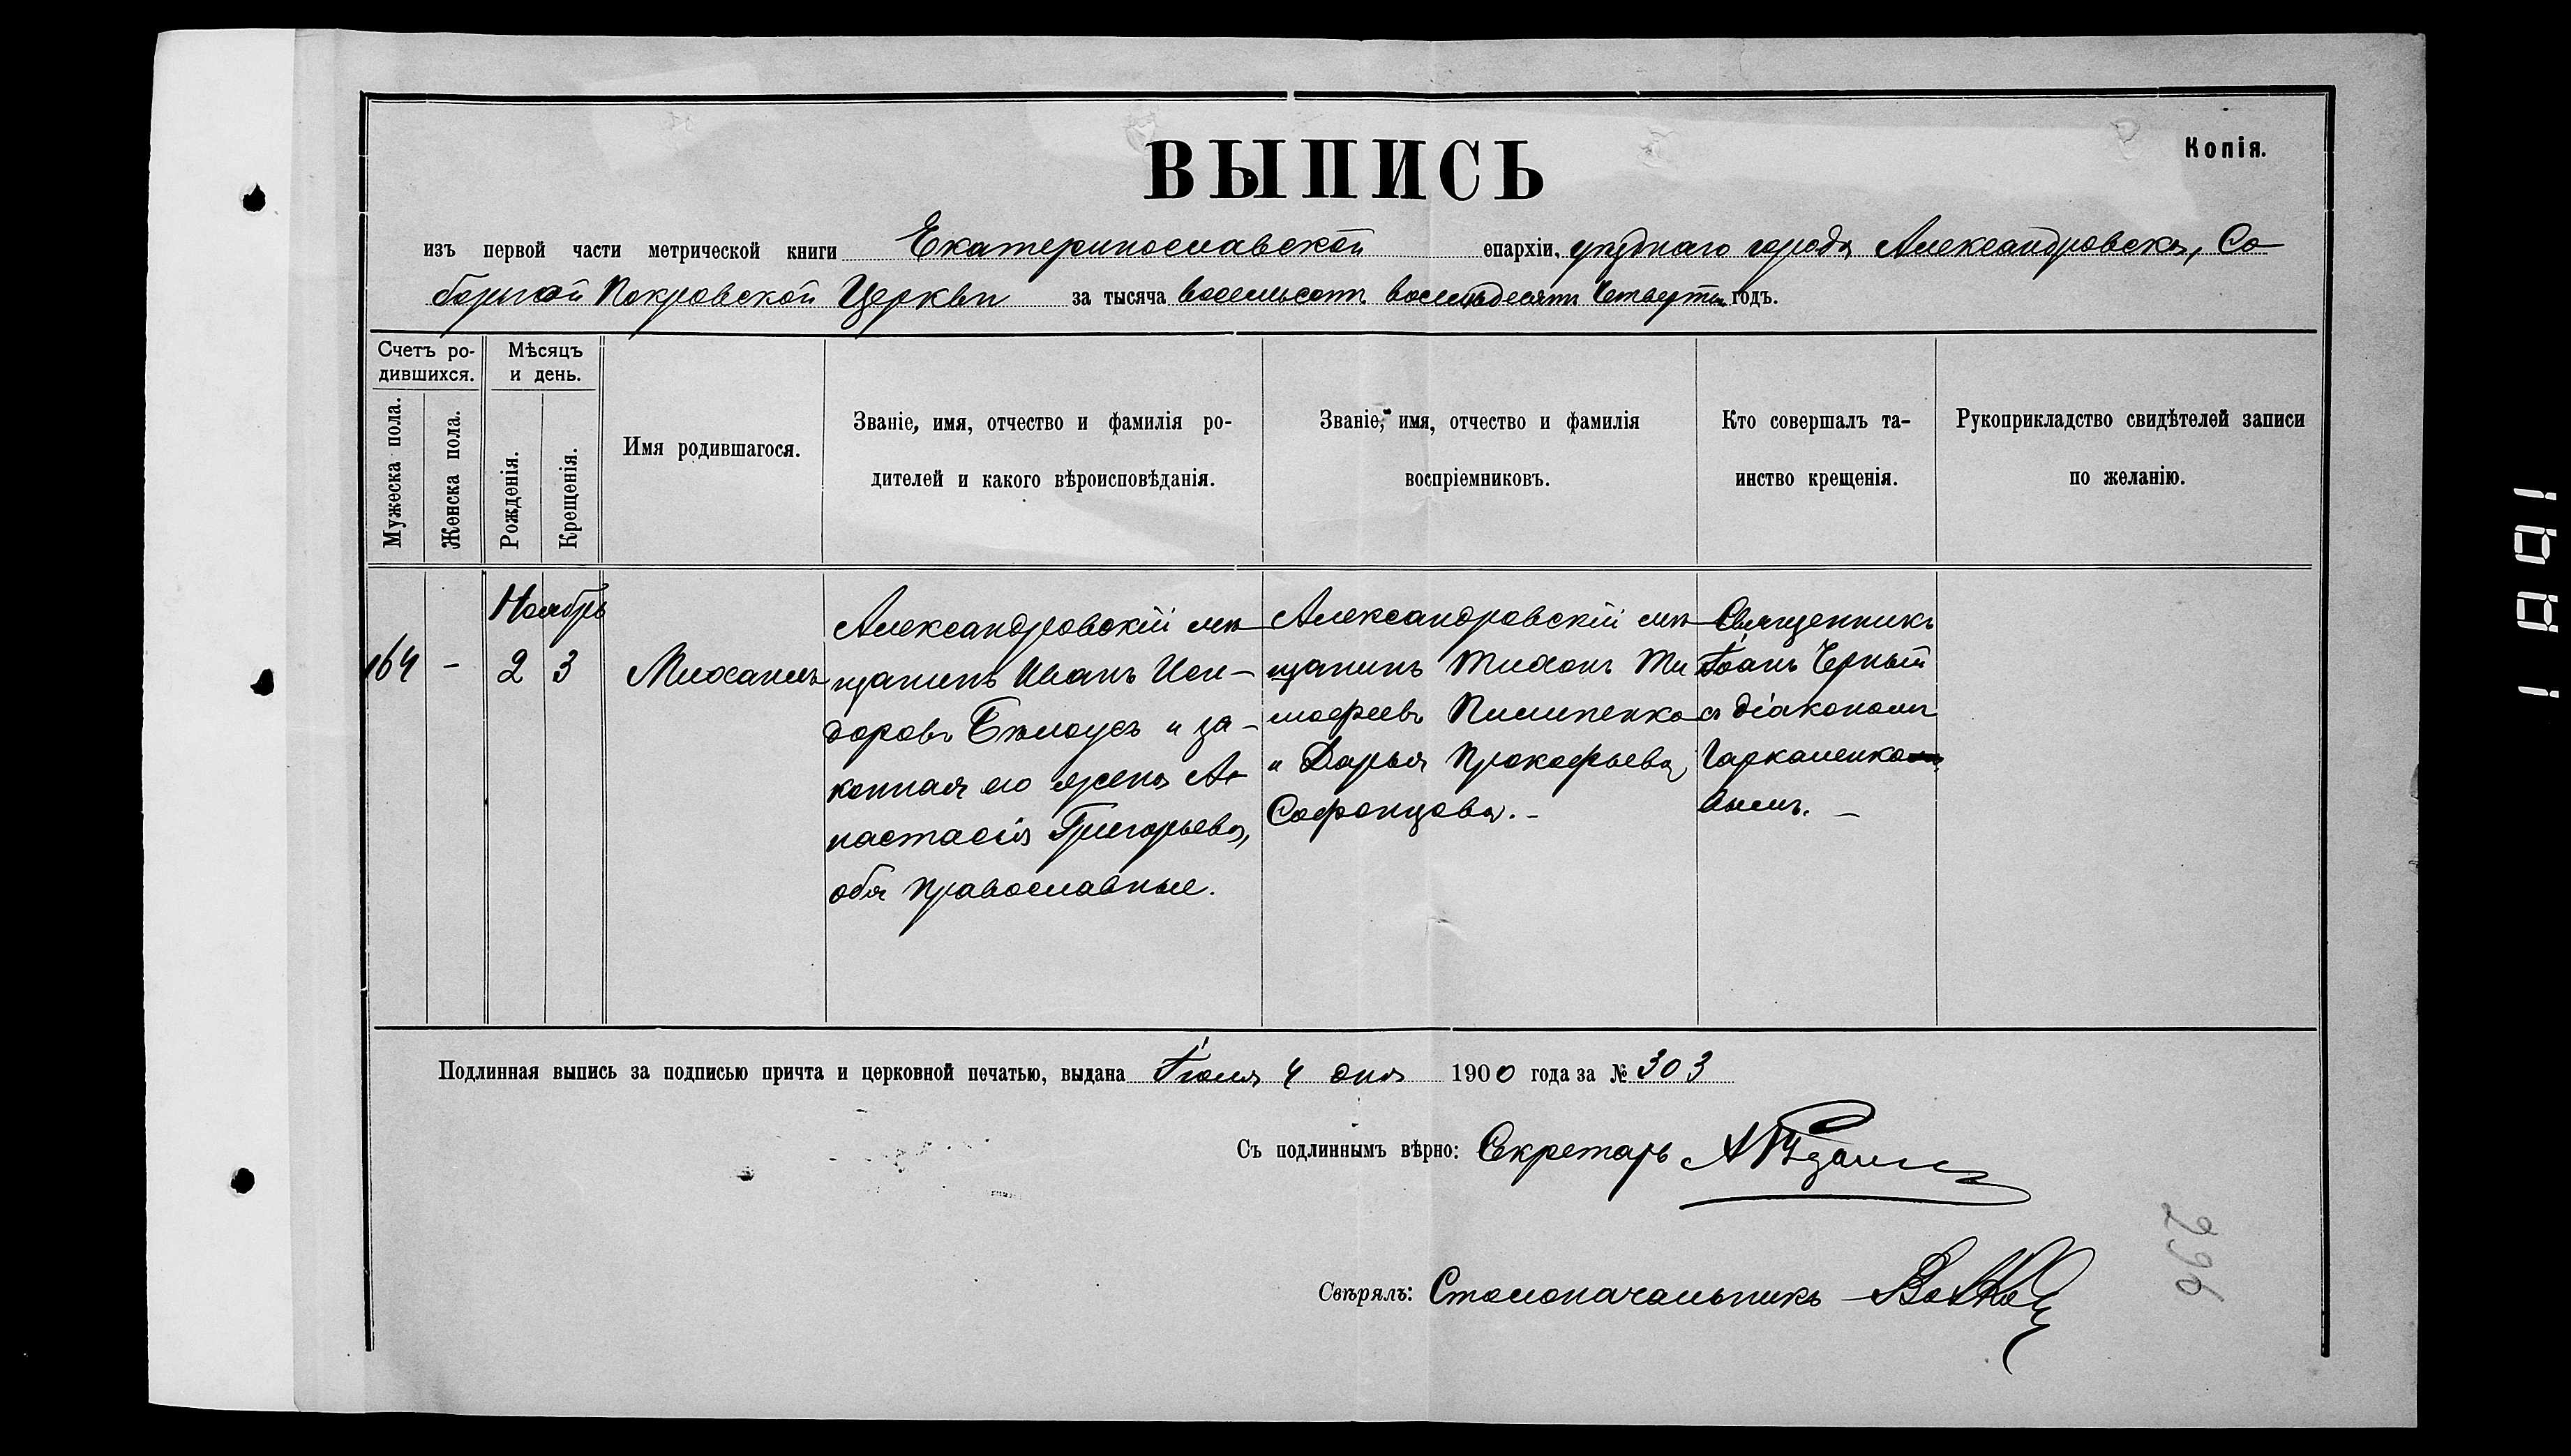 Копія.
ВЫПИСЬ
изъ первой части метрической книги Екатеринославской епархіи, уѣзднаго города Александровска, Со-
борной Покровской Церкви за тысяча восемьсотъ восемьдесятъ четвертый годъ.
Счетъ ро-
дившихся.
Мужеска пола.
Женска пола.
Мѣсяцъ
и день.
Рожденія.
Крещенія.
Имя родившагося.
Званіе, имя, отчество и фамилія ро-
дителей и какого вѣроисповѣданія.
Званіе, имя, отчество и фамилія
воспріемниковъ.
Кто совершалъ та-
инство крещенія.
Рукоприкладство свидѣтелей записи
по желанію.
164
-
Ноябрь
2
3
Михаилъ
Александровскій мѣ-
щанинъ Иванъ Иси-
доровъ Бѣлоусъ и за-
конная его жена А-
настасія Григорьева,
оба православные.
Александровскій мѣ-
щанинъ Тихонъ Ти
мофеевъ Пилипенко
и Дарья Прокофьева
Софонцова.-
Священникъ
Іоанъ Черный
съ діакономъ
Гаркаленко
вымъ. -
Подлинная выпись за подписью причта и церковной печатью, выдана Іюля 4 дня 1900 года за № 303
Съ подлиннымъ вѣрно: Секретарь
Свѣрялъ: Столоначальникъ
296
1881